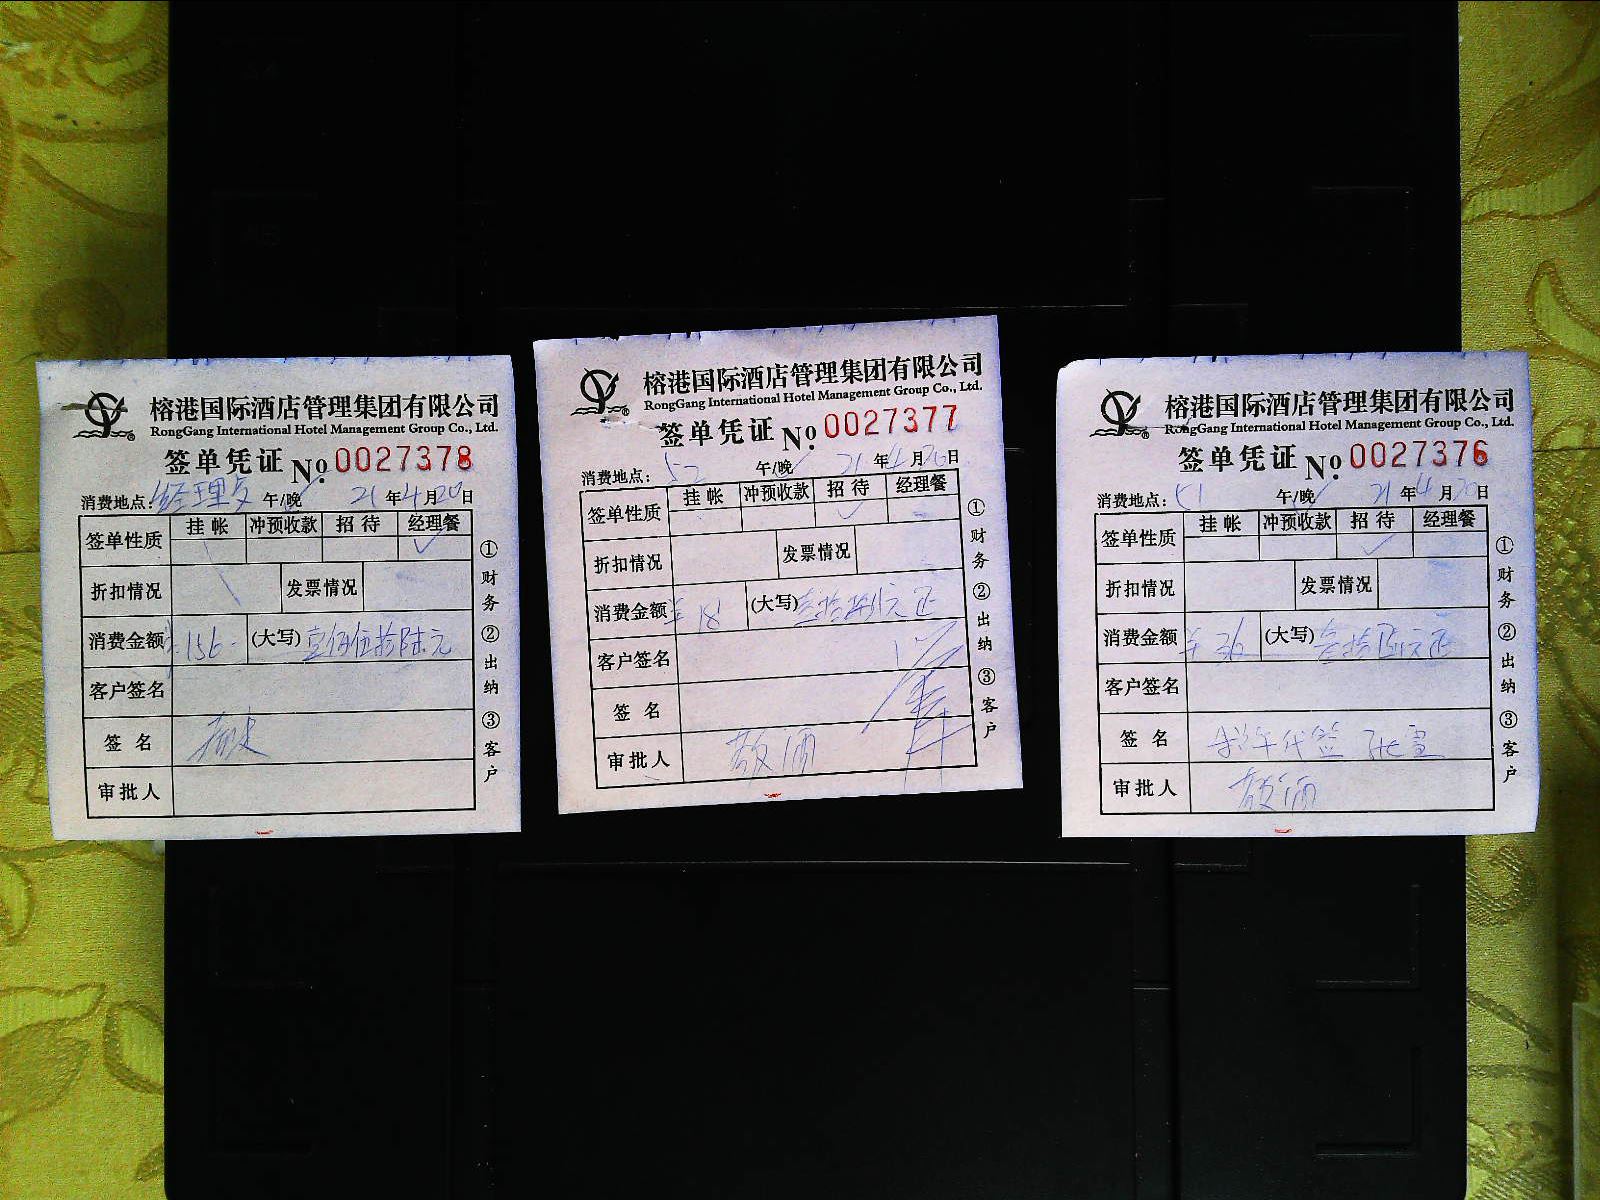 榕港国际酒店管理集团有限公司
RongGang International Hotel Management Group Co., Ltd.
签单凭证 No. 0027378
消费地点: 经理 午/晚 21年4月20日
签单性质 挂帐 冲预收款 招待 经理餐
✓
折扣情况 发票情况
消费金额 156- (大写) 壹佰伍拾陆元
客户签名
签名
审批人
①财务 ②出纳 ③客户
榕港国际酒店管理集团有限公司
RongGang International Hotel Management Group Co., Ltd.
签单凭证 No. 0027377
消费地点: 52 午/晚 21年4月20日
签单性质 挂帐 冲预收款 招待 经理餐
✓
折扣情况 发票情况
消费金额 ¥18 (大写) 壹拾捌元正
客户签名
签名
审批人
①财务 ②出纳 ③客户
榕港国际酒店管理集团有限公司
RongGang International Hotel Management Group Co., Ltd.
签单凭证 No. 0027376
消费地点: 51 午/晚 21年4月20日
签单性质 挂帐 冲预收款 招待 经理餐
✓
折扣情况 发票情况
消费金额 ¥36 (大写) 元正
客户签名
签名 代签
审批人
①财务 ②出纳 ③客户